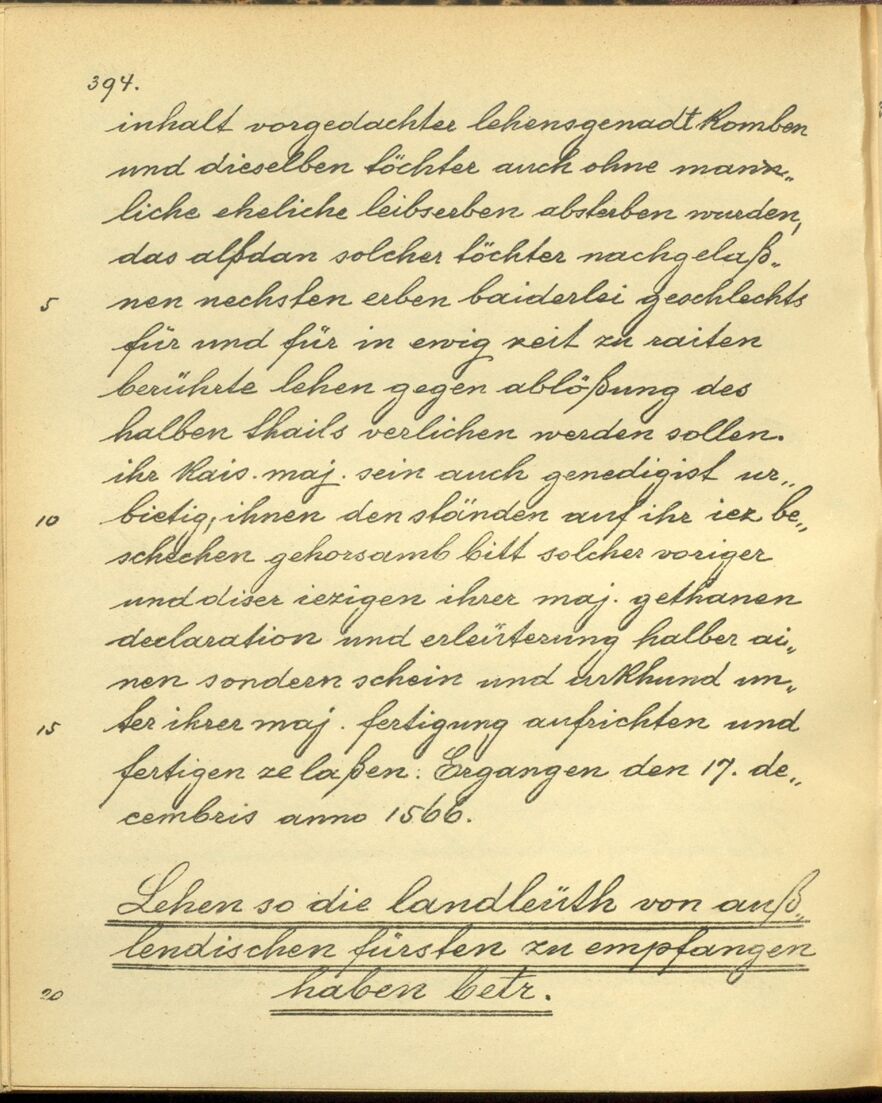 394.
inhalt vorgedachter lehensgenadt komben
und dieselben töchter auch ohne mann„
liche eheliche leibserben absterben wurden,
das alßdan solcher töchter nachgelaß„
5 nen nechsten erben baiderlei geschlechts
für und für in ewig zeit zu raiten
berührte lehen gegen ablößung des
halben thails verlichen werden sollen.
ihr kais. maj. sein auch genedigist ur„
10 bietig, ihnen den ständen auf ihr iez be„
schechen gehorsamb bitt solcher voriger
und diser iezigen ihrer maj. gethanen
declaration und erleüterung halber ai„
nen sondern schein und urkhund un„
15 ter ihrer maj. fertigung aufrichten und
fertigen ze laßen. Ergangen den 17. de„
cembris anno 1566.
Lehen so die landleüth von auß„
lendischen fürsten zu empfangen
20 haben betr.